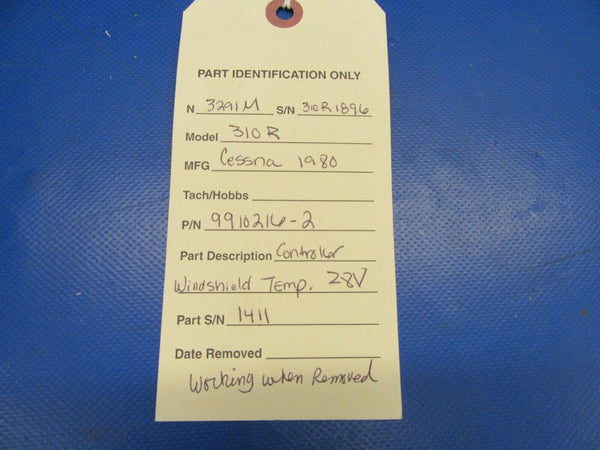 PART IDENTIFICATION ONLY
N 3291M S/N 310R1896
Model 310R
MFG Cessna 1980
Tach/Hobbs
P/N 9910216-2
Part Description Controller
Windshield Temp. 28V
Part S/N 1411
Date Removed
Working when Removed